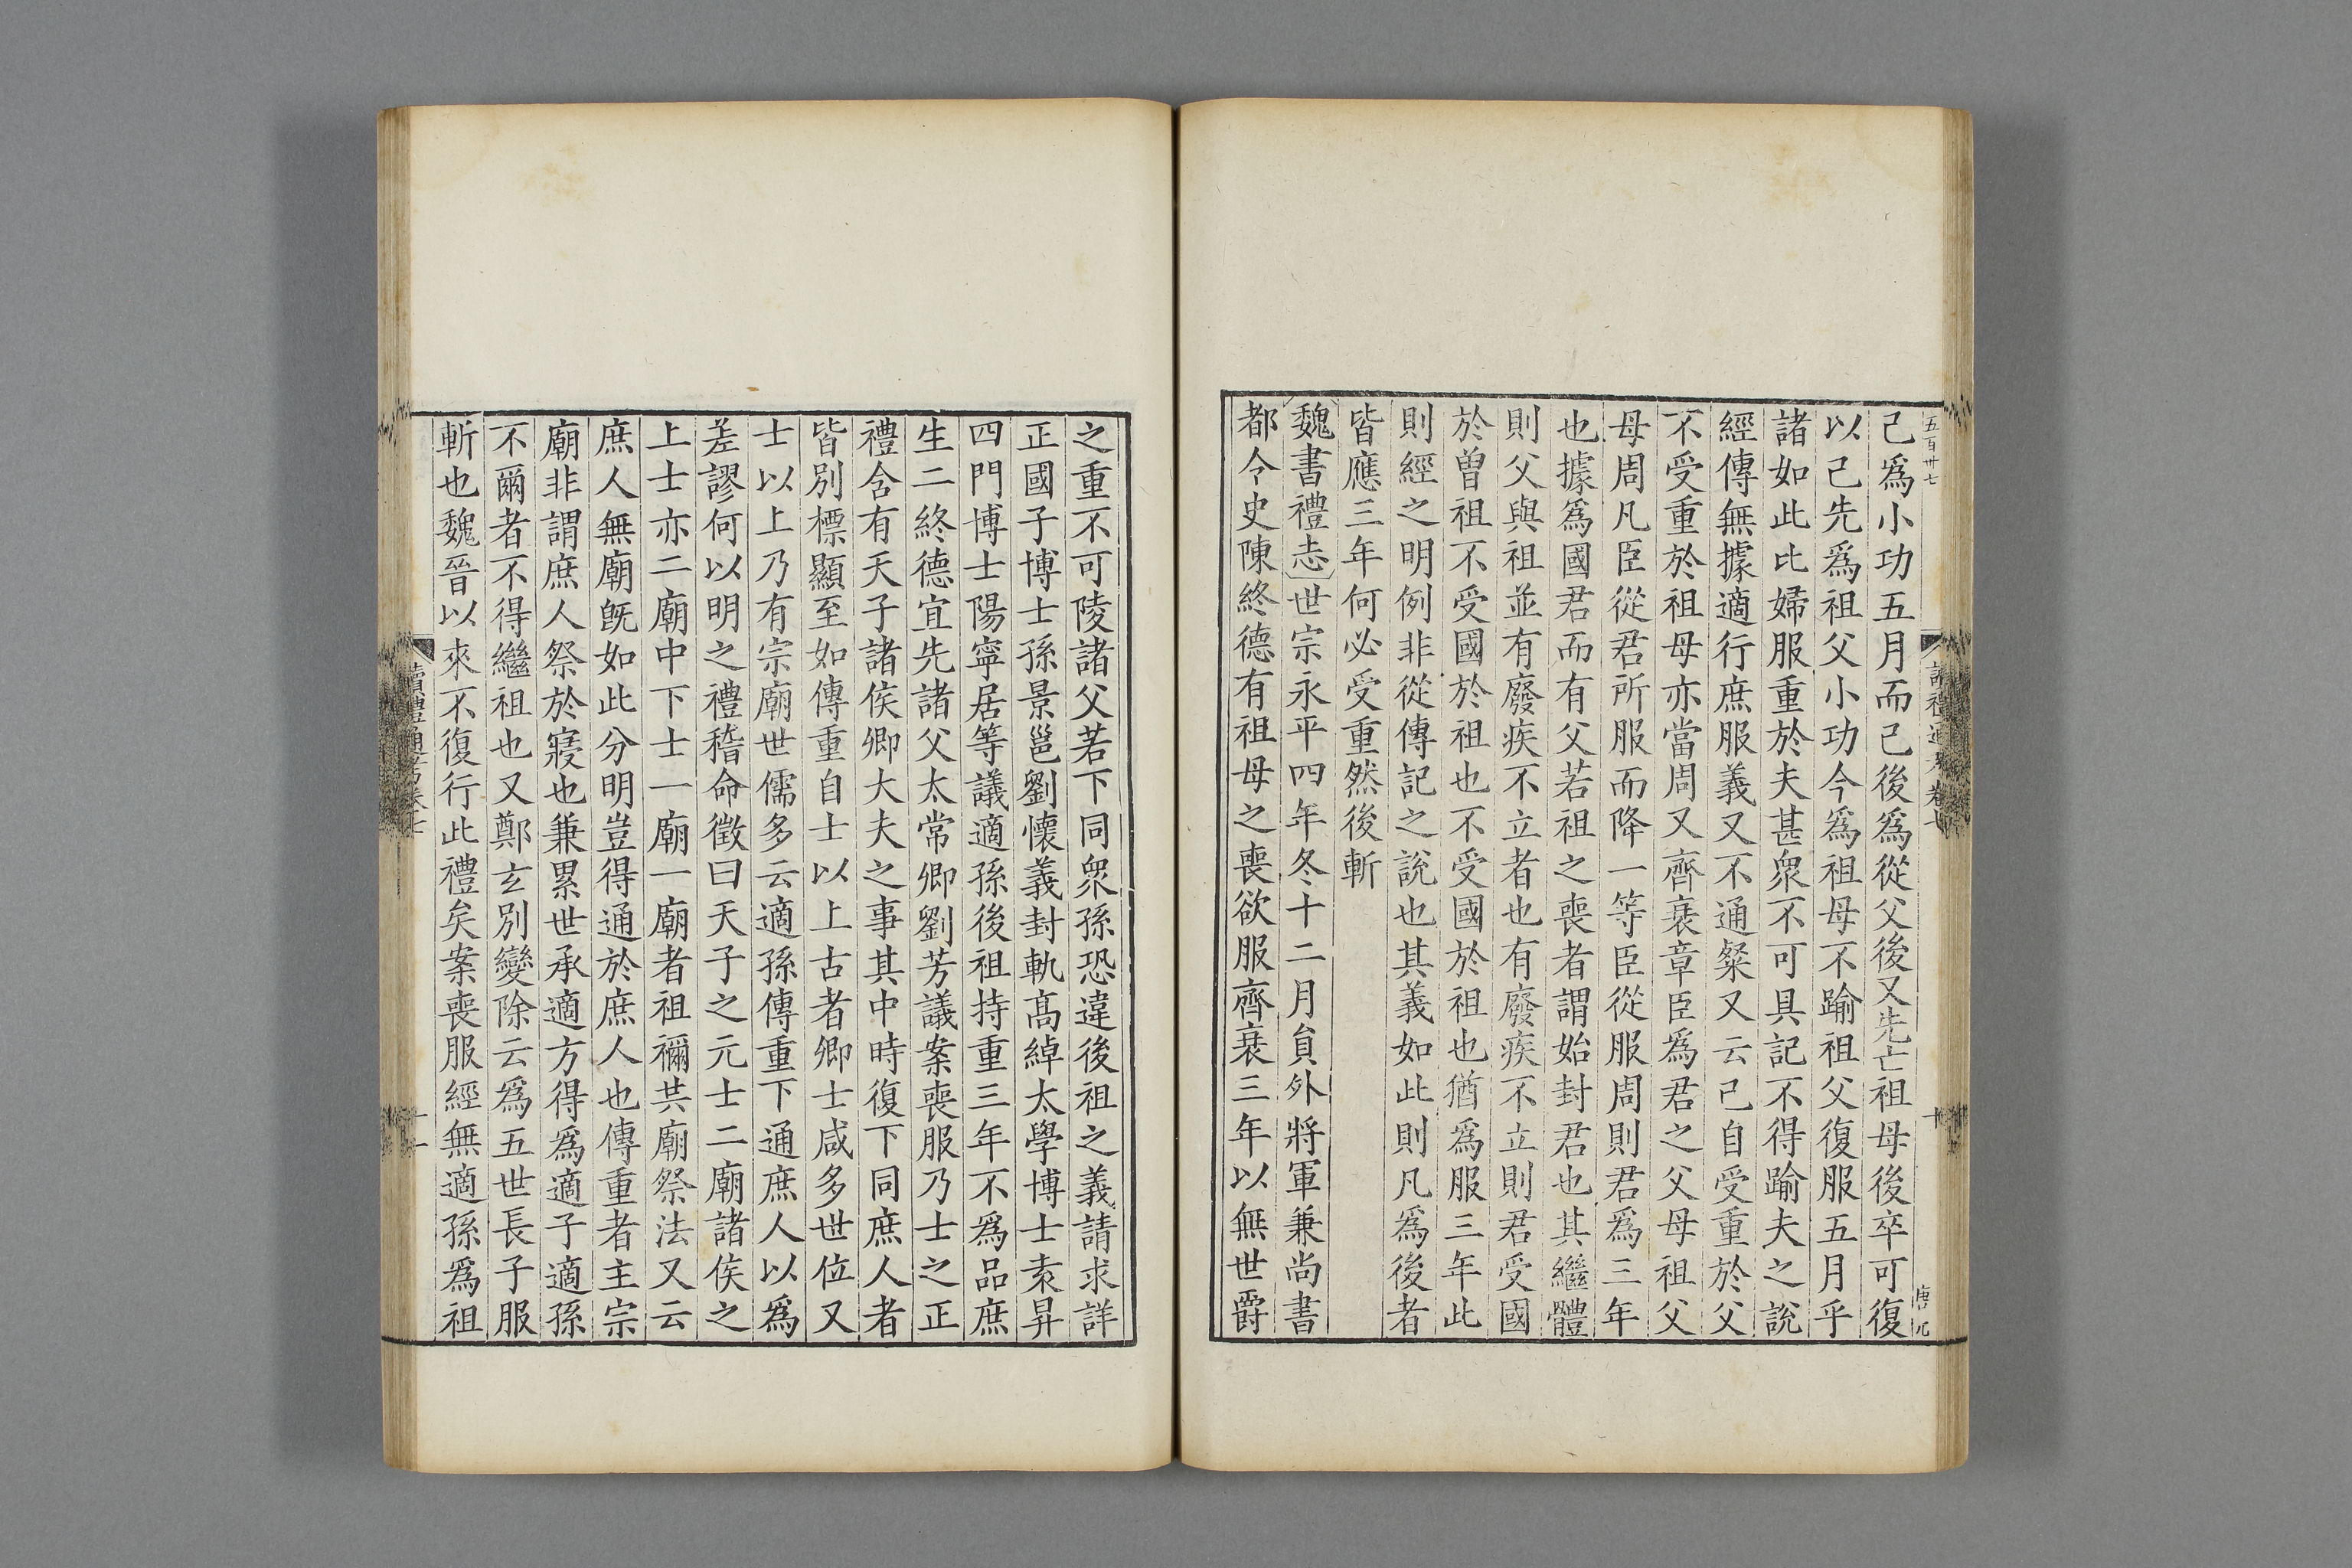 五百卅七
讀禮通考卷七
十
唐元
己爲小功五月而己後爲從父後又先亡祖母後卒可復
以己先爲祖父小功今爲祖母不踰祖父復服五月乎
諸如此比婦服重於夫甚衆不可具記不得踰夫之說
經傳無據適行庶服義又不通粲又云己自受重於父
不受重於祖母亦當周又齊衰章臣爲君之父母祖父
母周凡臣從君所服而降一等臣從服周則君爲三年
也據爲國君而有父若祖之喪者謂始封君也其繼體
則父與祖並有廢疾不立者也有廢疾不立則君受國
於曾祖不受國於祖也不受國於祖也猶爲服三年此
則經之明例非從傳記之說也其義如此則凡爲後者
皆應三年何必受重然後斬
魏書禮志世宗永平四年冬十二月貟外將軍兼尚書
都令史陳終德有祖母之喪欲服齊衰三年以無世爵
之重不可陵諸父若下同衆孫恐違後祖之義請求詳
正國子博士孫景邕劉懷義封軌髙綽太學博士袁昇
四門博士陽寧居等議適孫後祖持重三年不爲品庶
生二終德宜先諸父太常卿劉芳議案喪服乃士之正
禮含有天子諸侯卿大夫之事其中時復下同庶人者
皆別標顯至如傳重自士以上古者卿士咸多世位又
士以上乃有宗廟世儒多云適孫傳重下通庶人以爲
差謬何以明之禮稽命徵曰天子之元士二廟諸侯之
上士亦二廟中下士一廟一廟者祖禰共廟祭法又云
庶人無廟旣如此分明豈得通於庶人也傳重者主宗
廟非謂庶人祭於寢也兼累世承適方得爲適子適孫
不爾者不得繼祖也又鄭玄別變除云爲五世長子服
斬也魏晉以來不復行此禮矣案喪服經無適孫爲祖
讀禮通考卷七
十一